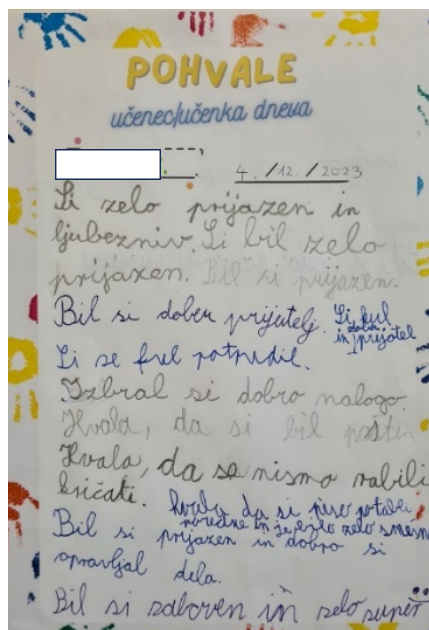 POHVALE
učenec/učenka dneva
4. /12. /2023
Si zelo prijazen in
ljubezniv. Si bil zelo
prijazen. Bil si prijazen.
Bil si dober prijatelj. Si kul
in dober prijatel
Si se ful potrudil.
Izbral si dobro nalogo.
Hvala, da si bil pošten
Hvala, da se nismo rabili
kričati.
hvala da si
in je bilo zelo smešn
Bil si prijazen in dobro si
opravljal dela.
Bil si zabaven in zelo super